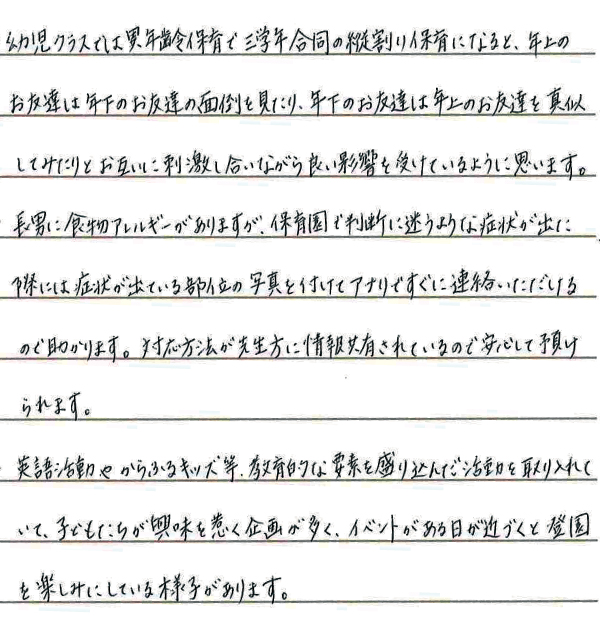 幼児クラスでは異年齢保育で三学年合同の縦割り保育になると、年上の
お友達は年下のお友達の面倒を見たり、年下のお友達は年上のお友達を真似
してみたりとお互いに刺激し合いながら良い影響を受けているように思います。
長男に食物アレルギーがありますが、保育園で判断に迷うような症状が出た
際には症状が出ている部位の写真を付けてアプリですぐに連絡いただける
ので助かります。対応方法が先生方に情報共有されているので安心して預け
られます。
英語活動やからふるキッズ等、教育的な要素を盛り込んだ活動を取り入れて
いて、子どもたちが興味を惹く企画が多く、イベントがある日が近づくと登園
を楽しみにしている様子があります。